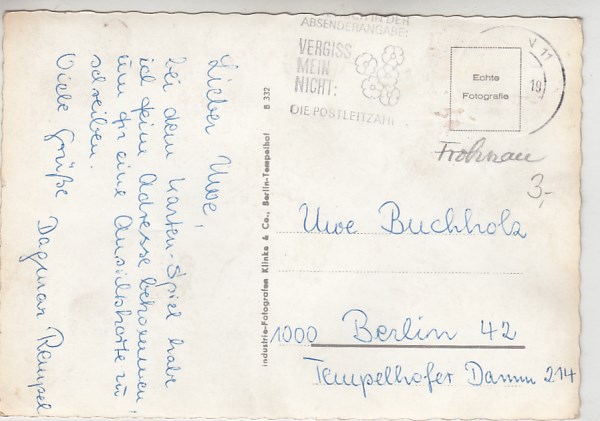 Lieber Uwe,
bei dem Karten-Spiel habe
ich deine Adresse bekommen,
um dir eine Ansichtskarte zu
schreiben.
Viele Grüße Dagmar Rempel
Industrie-Fotografen Klinke & Co., Berlin-Tempelhof B 332
IN DER
ABSENDERANGABE:
VERGISS
MEIN
NICHT:
DIE POSTLEITZAHL
V 11
19
Echte
Fotografie
Frohnau
3,-
Uwe Buchholz
1000 Berlin 42
Tempelhofer Damm 214